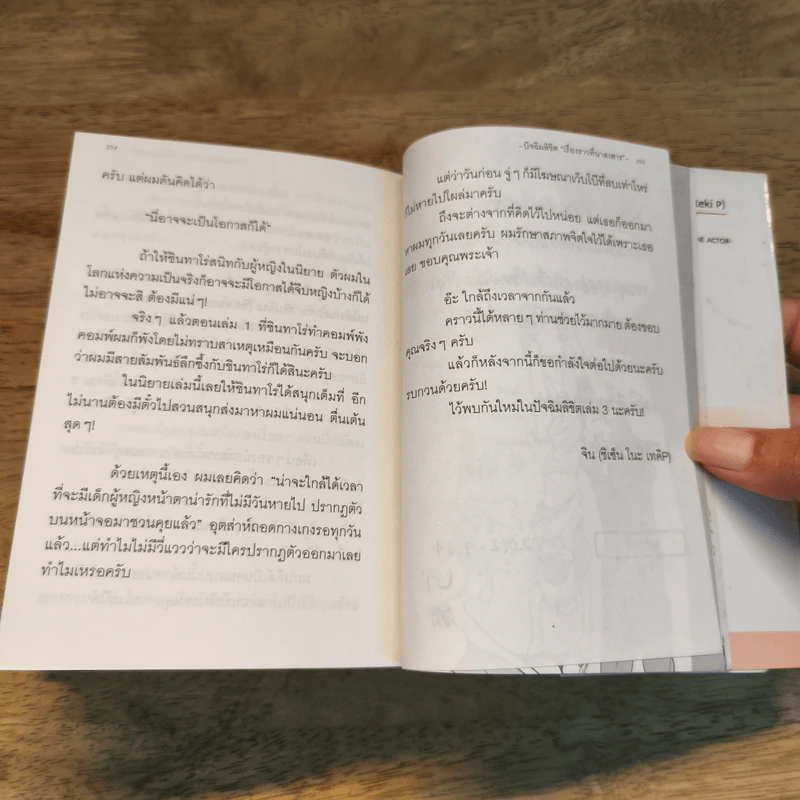 254
ครับ แต่ผมดันคิดได้ว่า
"นี่อาจจะเป็นโอกาสก็ได้"
ถ้าให้ชินทาโร่สนิทกับผู้หญิงในนิยาย ตัวผมใน
โลกแห่งความเป็นจริงก็อาจจะมีโอกาสได้จีบหญิงบ้างก็ได้
ไม่อาจจะสิ ต้องมีแน่ๆ!
จริงๆ แล้วตอนเล่ม 1 ที่ชินทาโร่ทำคอมพ์พัง
คอมพ์ผมก็พังโดยไม่ทราบสาเหตุเหมือนกันครับ จะบอก
ว่าผมมีสายสัมพันธ์ลึกซึ้งกับชินทาโร่ก็ได้สินะครับ
ในนิยายเล่มนี้เลยให้ชินทาโร่ได้สนุกเต็มที่ อีก
ไม่นานต้องมีตั๋วไปสวนสนุกส่งมาหาผมแน่นอน ตื่นเต้น
สุดๆ!
ด้วยเหตุนี้เอง ผมเลยคิดว่า "น่าจะใกล้ได้เวลา
ที่จะมีเด็กผู้หญิงหน้าตาน่ารักที่ไม่มีวันหายไป ปรากฏตัว
บนหน้าจอมาชวนคุยแล้ว" อุตส่าห์ถอดกางเกงรอทุกวัน
แล้ว...แต่ทำไมไม่มีวี่แววว่าจะมีใครปรากฏตัวออกมาเลย
ทำไมเหรอครับ
-ปัจฉิมลิขิต "เรื่องราวที่น่าสงสาร"- 255
แต่ว่าวันก่อน จู่ๆ ก็มีโฆษณาเว็บโป๊ที่ลบเท่าไหร่
ก็ไม่หายไปโผล่มาครับ
ถึงจะต่างจากที่คิดไว้ไปหน่อย แต่เธอก็ออกมา
หาผมทุกวันเลยครับ ผมรักษาสภาพจิตใจไว้ได้เพราะเธอ
เลย ขอบคุณพระเจ้า
อ๊ะ ใกล้ถึงเวลาจากกันแล้ว
คราวนี้ได้หลายๆ ท่านช่วยไว้มากมาย ต้องขอบ
คุณจริงๆ ครับ
แล้วก็หลังจากนี้ก็ขอกำลังใจต่อไปด้วยนะครับ
รบกวนด้วยครับ!
ไว้พบกันใหม่ในปัจฉิมลิขิตเล่ม 3 นะครับ!
จิน (ชิเซ็น โนะ เทคิP)
teki P)
ACTOR-